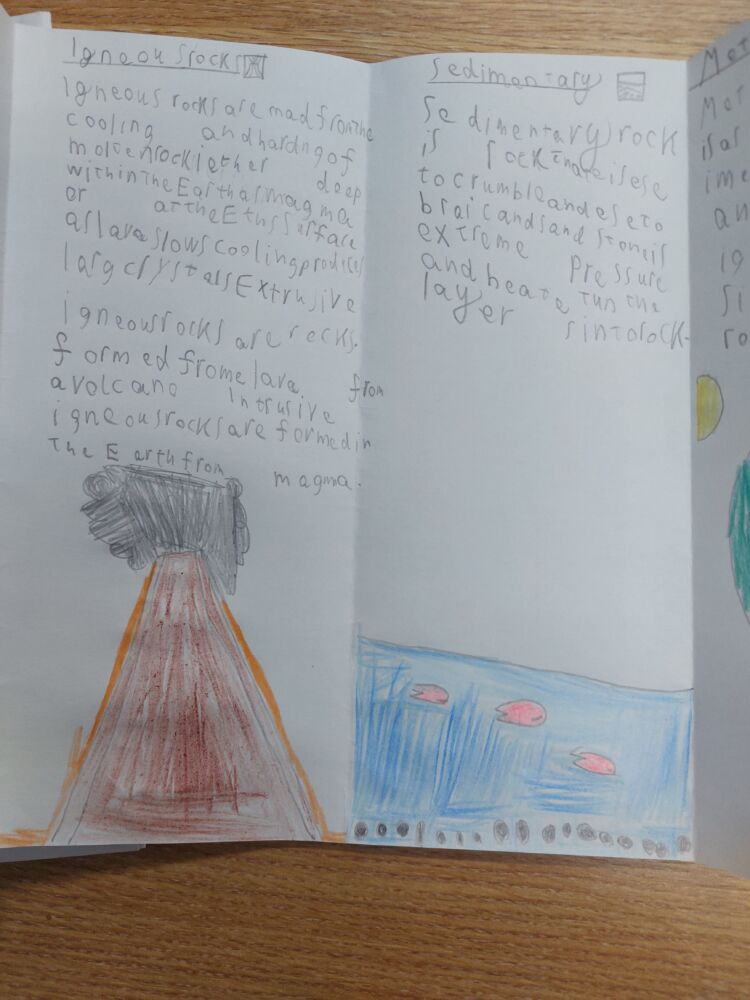 Igneous rocks
Igneous rocks are mad from the
cooling and harding of
moltenrock iether deep
within the Earth as magma
or at the Eths surface
as lava slows cooling produces
larg crystals Extrusive
igneous rocks are rocks.
formed frome lava from
a volcano Intrusive
igneous rocks are formed in
the Earth from magma.
Sedimentary
Sedimentary rock
is rock that is ese
to crumble and ese to
braic and sand stone is
extreme pressure
and heate tun the
layer s into rock.
Met
Met
is a
ime
an
ig
si
ro